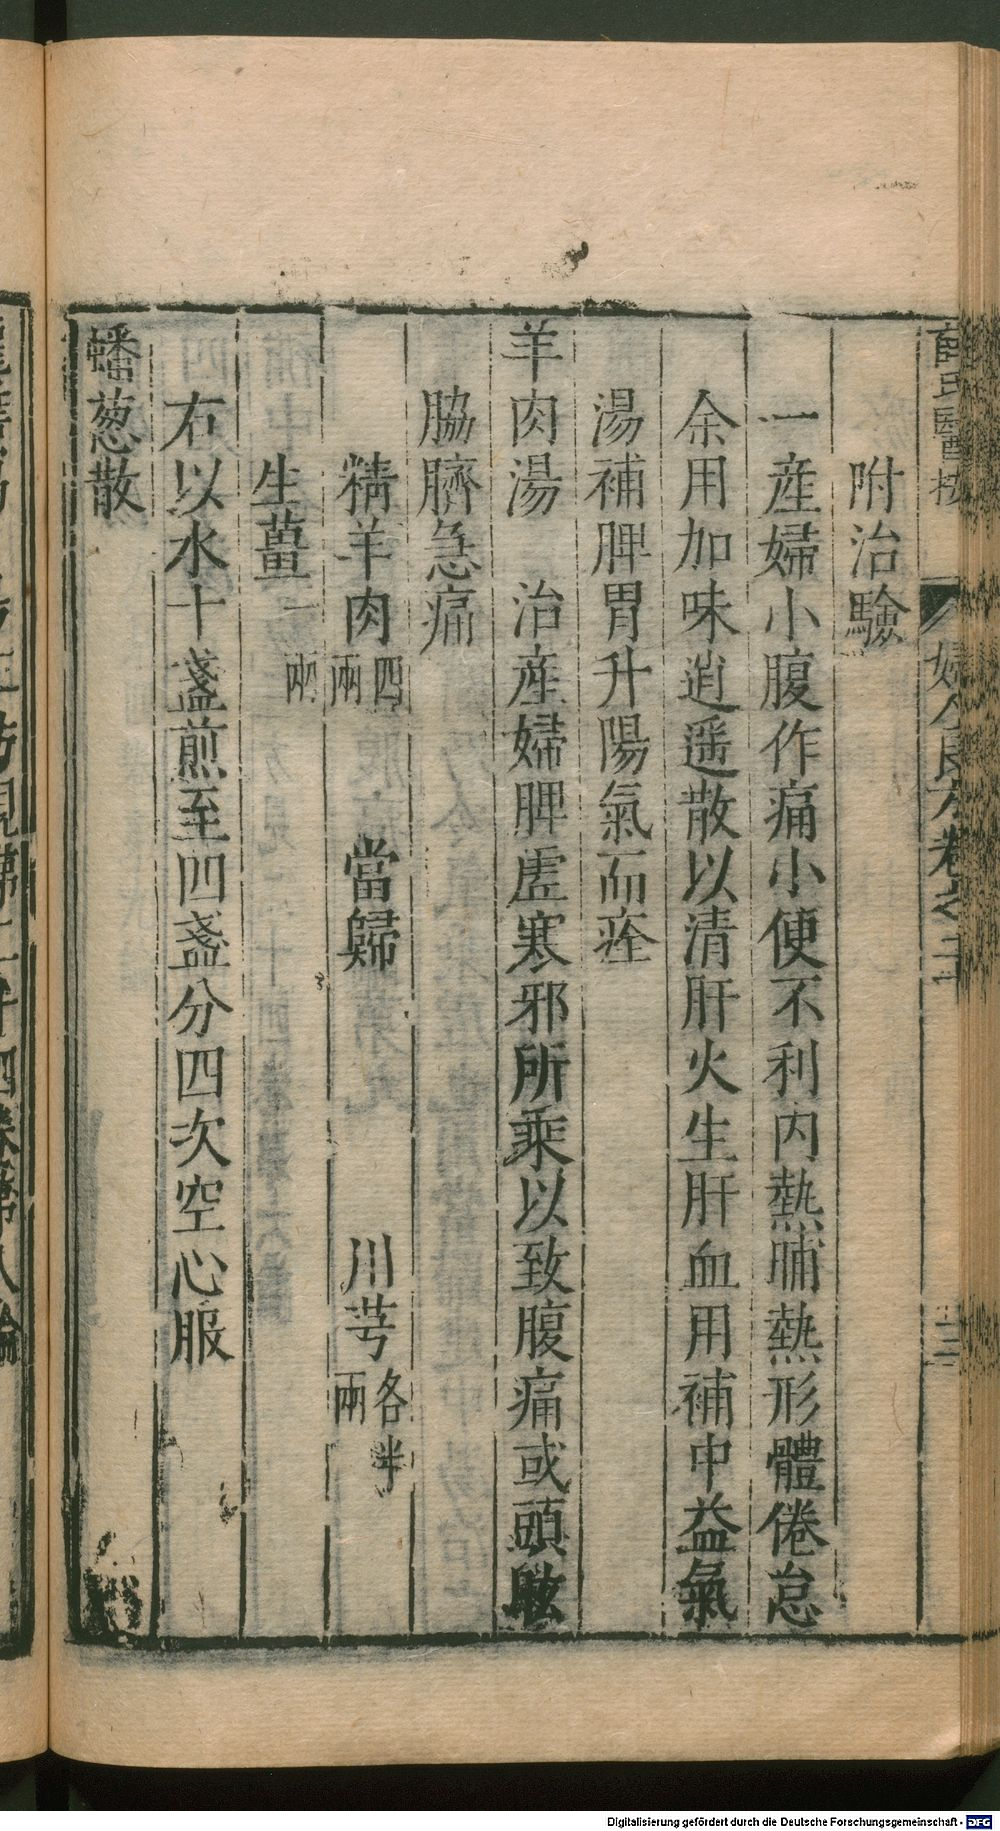 附治驗
一産婦小腹作痛小便不利内熱晡熱形體倦怠
余用加味逍遥散以清肝火生肝血用補中益氣
湯補脾胃升陽氣而痊
羊肉湯　治産婦脾虚寒邪所乘以致腹痛或頭眩
脇臍急痛
精羊肉四兩　當歸　川芎各半兩
生薑一兩
右以水十盞煎至四盞分四次空心服
蟠葱散
薛氏醫按　婦人良方卷之二十
Digitalisierung gefördert durch die Deutsche Forschungsgemeinschaft - DFG